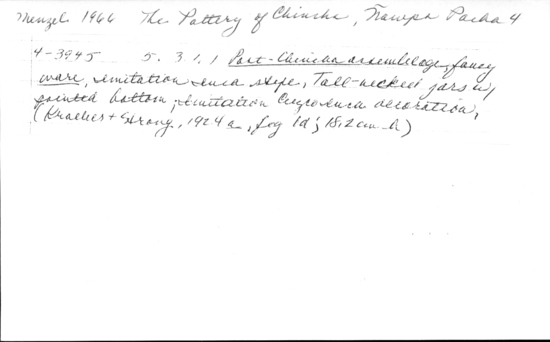 Menzel 1966 The Pottery of Chincha, Ñawpa Pacha 4
4-3945 5. 3. 1. 1 Post-Chincha assemblage, fancy
ware, imitation inca shape, Tall-necked jars w/
pointed bottom, imitation Cuzco-inca decoration,
(Kroeber + Strong, 1924a, fig 1d; 18.2 cm h)